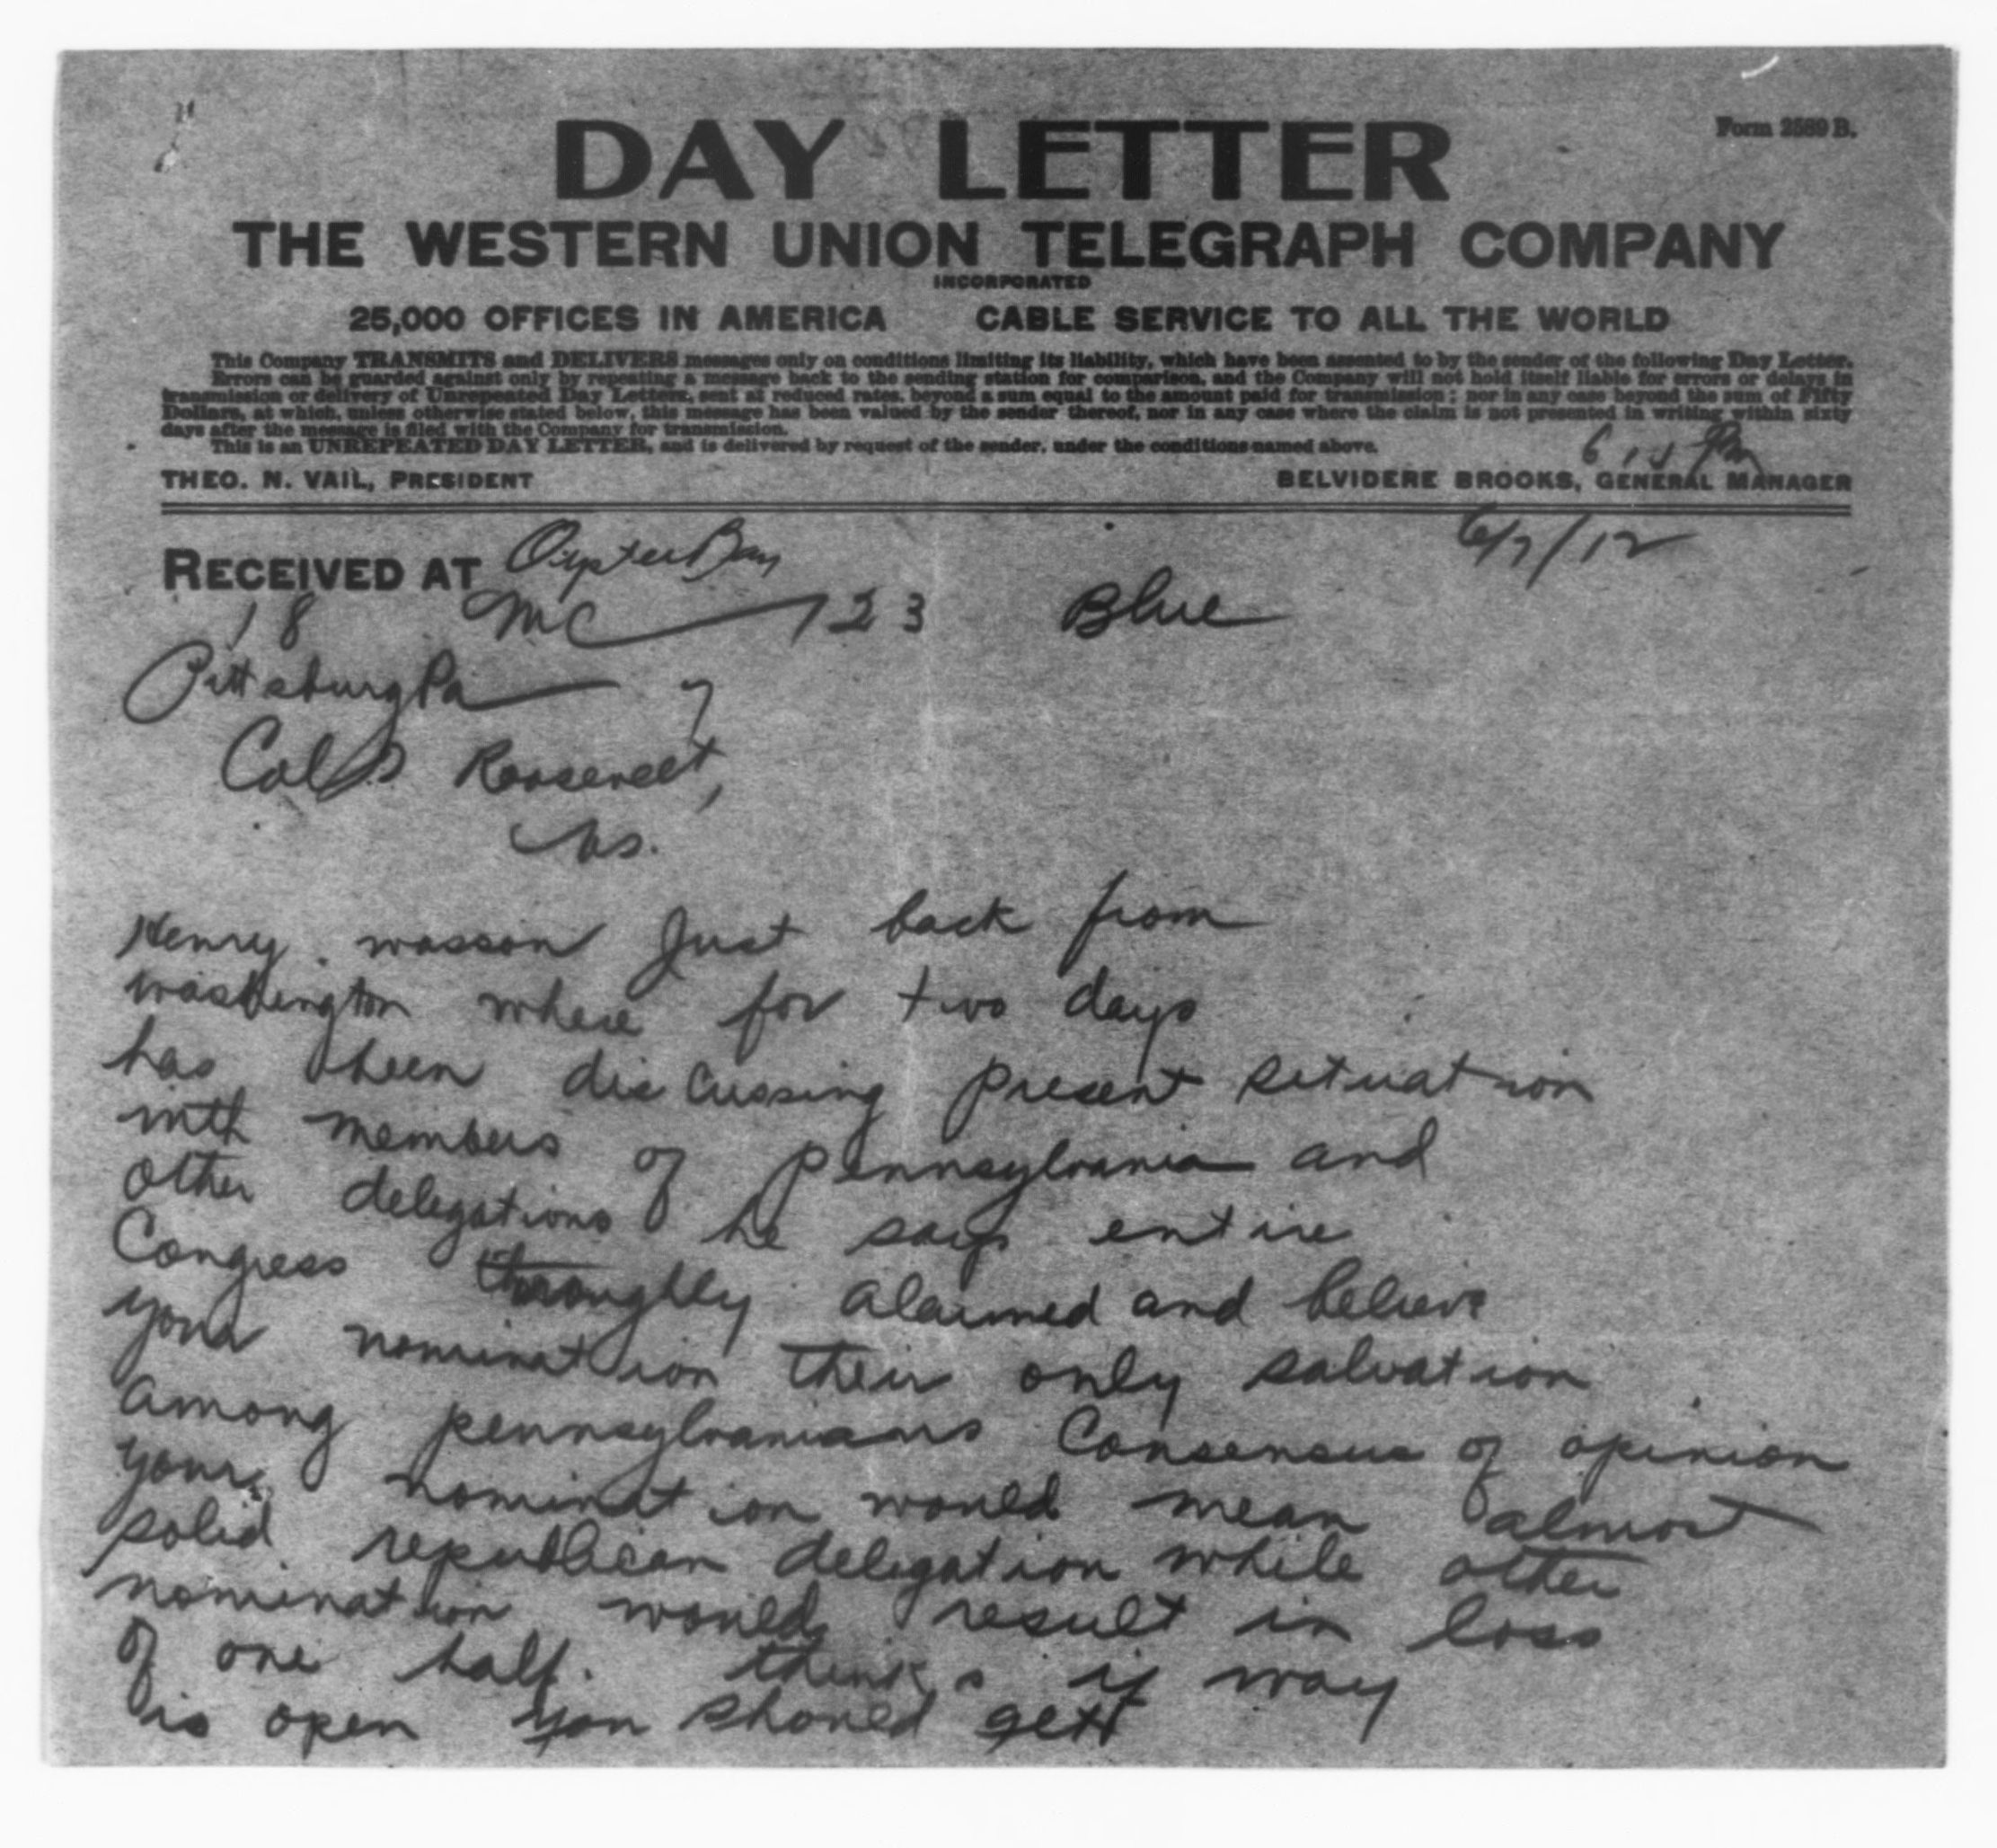 Form 2589 B.
DAY LETTER
THE WESTERN UNION TELEGRAPH COMPANY
INCORPORATED
25,000 OFFICES IN AMERICA CABLE SERVICE TO ALL THE WORLD
This Company TRANSMITS and DELIVERS messages only on conditions limiting its liability, which have been assented to by the sender of the following Day Letter.
Errors can be guarded against only by repeating a message back to the sending station for comparison, and the Company will not hold itself liable for errors or delays in
transmission or delivery of Unrepeated Day Letters, sent at reduced rates, beyond a sum equal to the amount paid for transmission; nor in any case beyond the sum of Fifty
Dollars, at which, unless otherwise stated below, this message has been valued by the sender thereof, nor in any case where the claim is not presented in writing within sixty
days after the message is filed with the Company for transmission.
This is an UNREPEATED DAY LETTER, and is delivered by request of the sender, under the conditions named above.
THEO. N. VAIL, PRESIDENT BELVIDERE BROOKS, GENERAL MANAGER
RECEIVED AT Oyster Bay 6/7/12
18 MC 123 Blue
Pittsburg Pa 7
Col Roosevelt,
Henry wasson Just back from
washington where for two days
has been discussing present situation
with members of pennsylvania and
other delegations he says entire
Congress throughly alarmed and believe
your nomination their only salvation
among pennsylvanians Consensus of opinion
your nomination would mean almost
solid republican delegation while other
nomination would result in loss
of one half. thinks if way
is open you should get